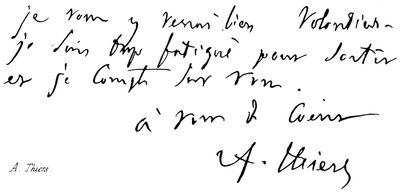 je vous y verrai bien volontiers
je suis trop fatigué pour sortir
et je compte sur vous.
à vous de coeur
A. Thiers
A. Thiers.